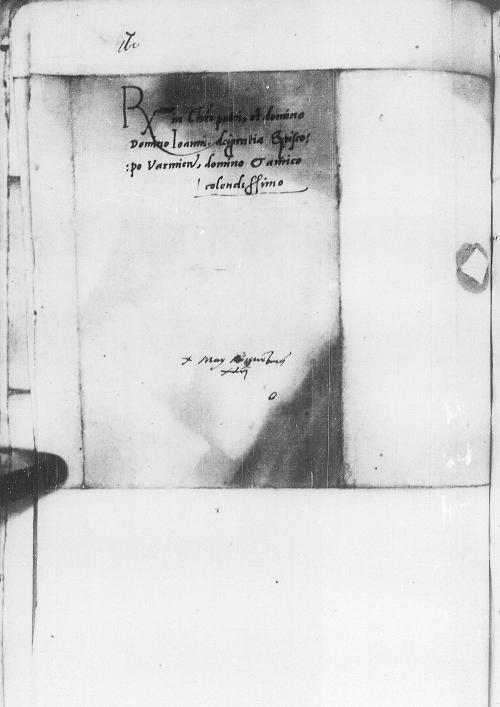 R in Chro patri, et domino
Domino Ioanni, dei gratia Episco:
:po Varmien, domino & amico
colendissimo
x May